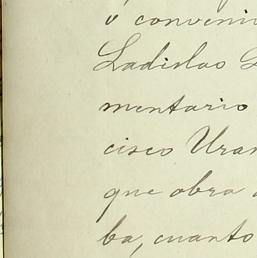 ó conveni
Ladislao G
mentario
cisco Uran
que obra a
ba, cuanto